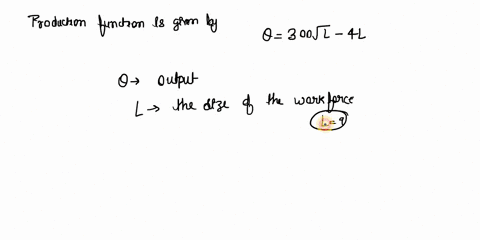 Production function is given by
Q = 300√L - 4L
Q → output
L → the size of the workforce
L = 9